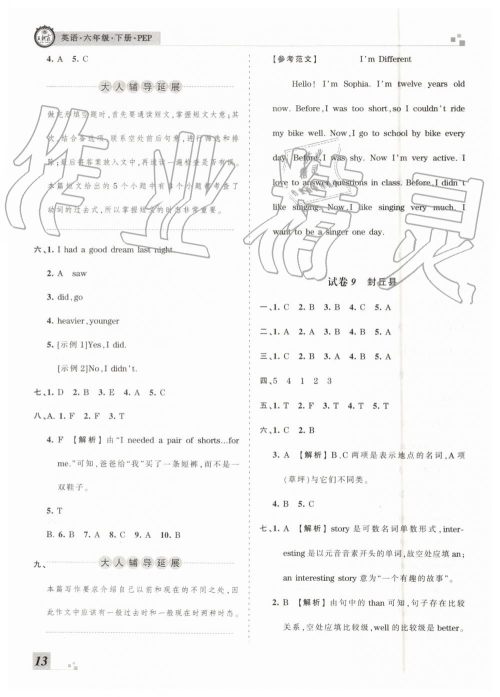 英语·六年级·下册·PEP
4. A 5. C
大人辅导延展
做此形填空题时,首先要通读短文,掌握短文大意;其
次,结合备选项,联系空处前后句意,进行筛选和排
除;最后把答案放入文中,再读读一遍检查是否有误。
本篇短文给出的5个小题中有多个小题都考查了
动词的过去式,所以掌握短文的时态非常重要。
六、1. I had a good dream last night.
2. A saw
3. did, go
4. heavier, younger
5. [示例1]Yes, I did.
[示例2]No, I didn't.
七、1. D 2. B 3. E 4. A 5. C
八、A. 1. F 2. F 3. T
4. F 【解析】由“I needed a pair of shorts…for
me.”可知,爸爸给“我”买了一条短裤,而不是一
双鞋子。
5. T
B. 6. B 7. B 8. A 9. A 10. B
九、 大人辅导延展
本篇写作要求介绍自己以前和现在的不同之处,因
此作文中应该有一般过去时和一般现在时两种时态。
13
【参考范文】 I'm Different
Hello! I'm Sophia. I'm twelve years old
now. Before, I was too short, so I couldn't ride
my bike well. Now, I go to school by bike every
day. Before, I was shy. Now I'm very active. I
love to answer questions in class. Before, I didn't
like singing. Now I like singing very much. I
want to be a singer one day.
试卷9 封丘县
一、1. C 2. B 3. B 4. C 5. A
二、1. A 2. A 3. B 4. C 5. A
三、1. C 2. B 3. C 4. B 5. A
四、5 4 1 2 3
五、1. T 2. F 3. F 4. T 5. T
六、1. C 2. B
3. A 【解析】B、C两项是表示地点的名词,A项
(草坪)与它们不同类。
4. B 5. C
七、1. A 【解析】story 是可数名词单数形式,inter-
esting是以元音音素开头的单词,故空处应填an;
an interesting story 意为“一个有趣的故事”。
2. B 【解析】由句中的than可知,句子存在比较
关系,空处应填比较级,well的比较级为better。
作业精灵